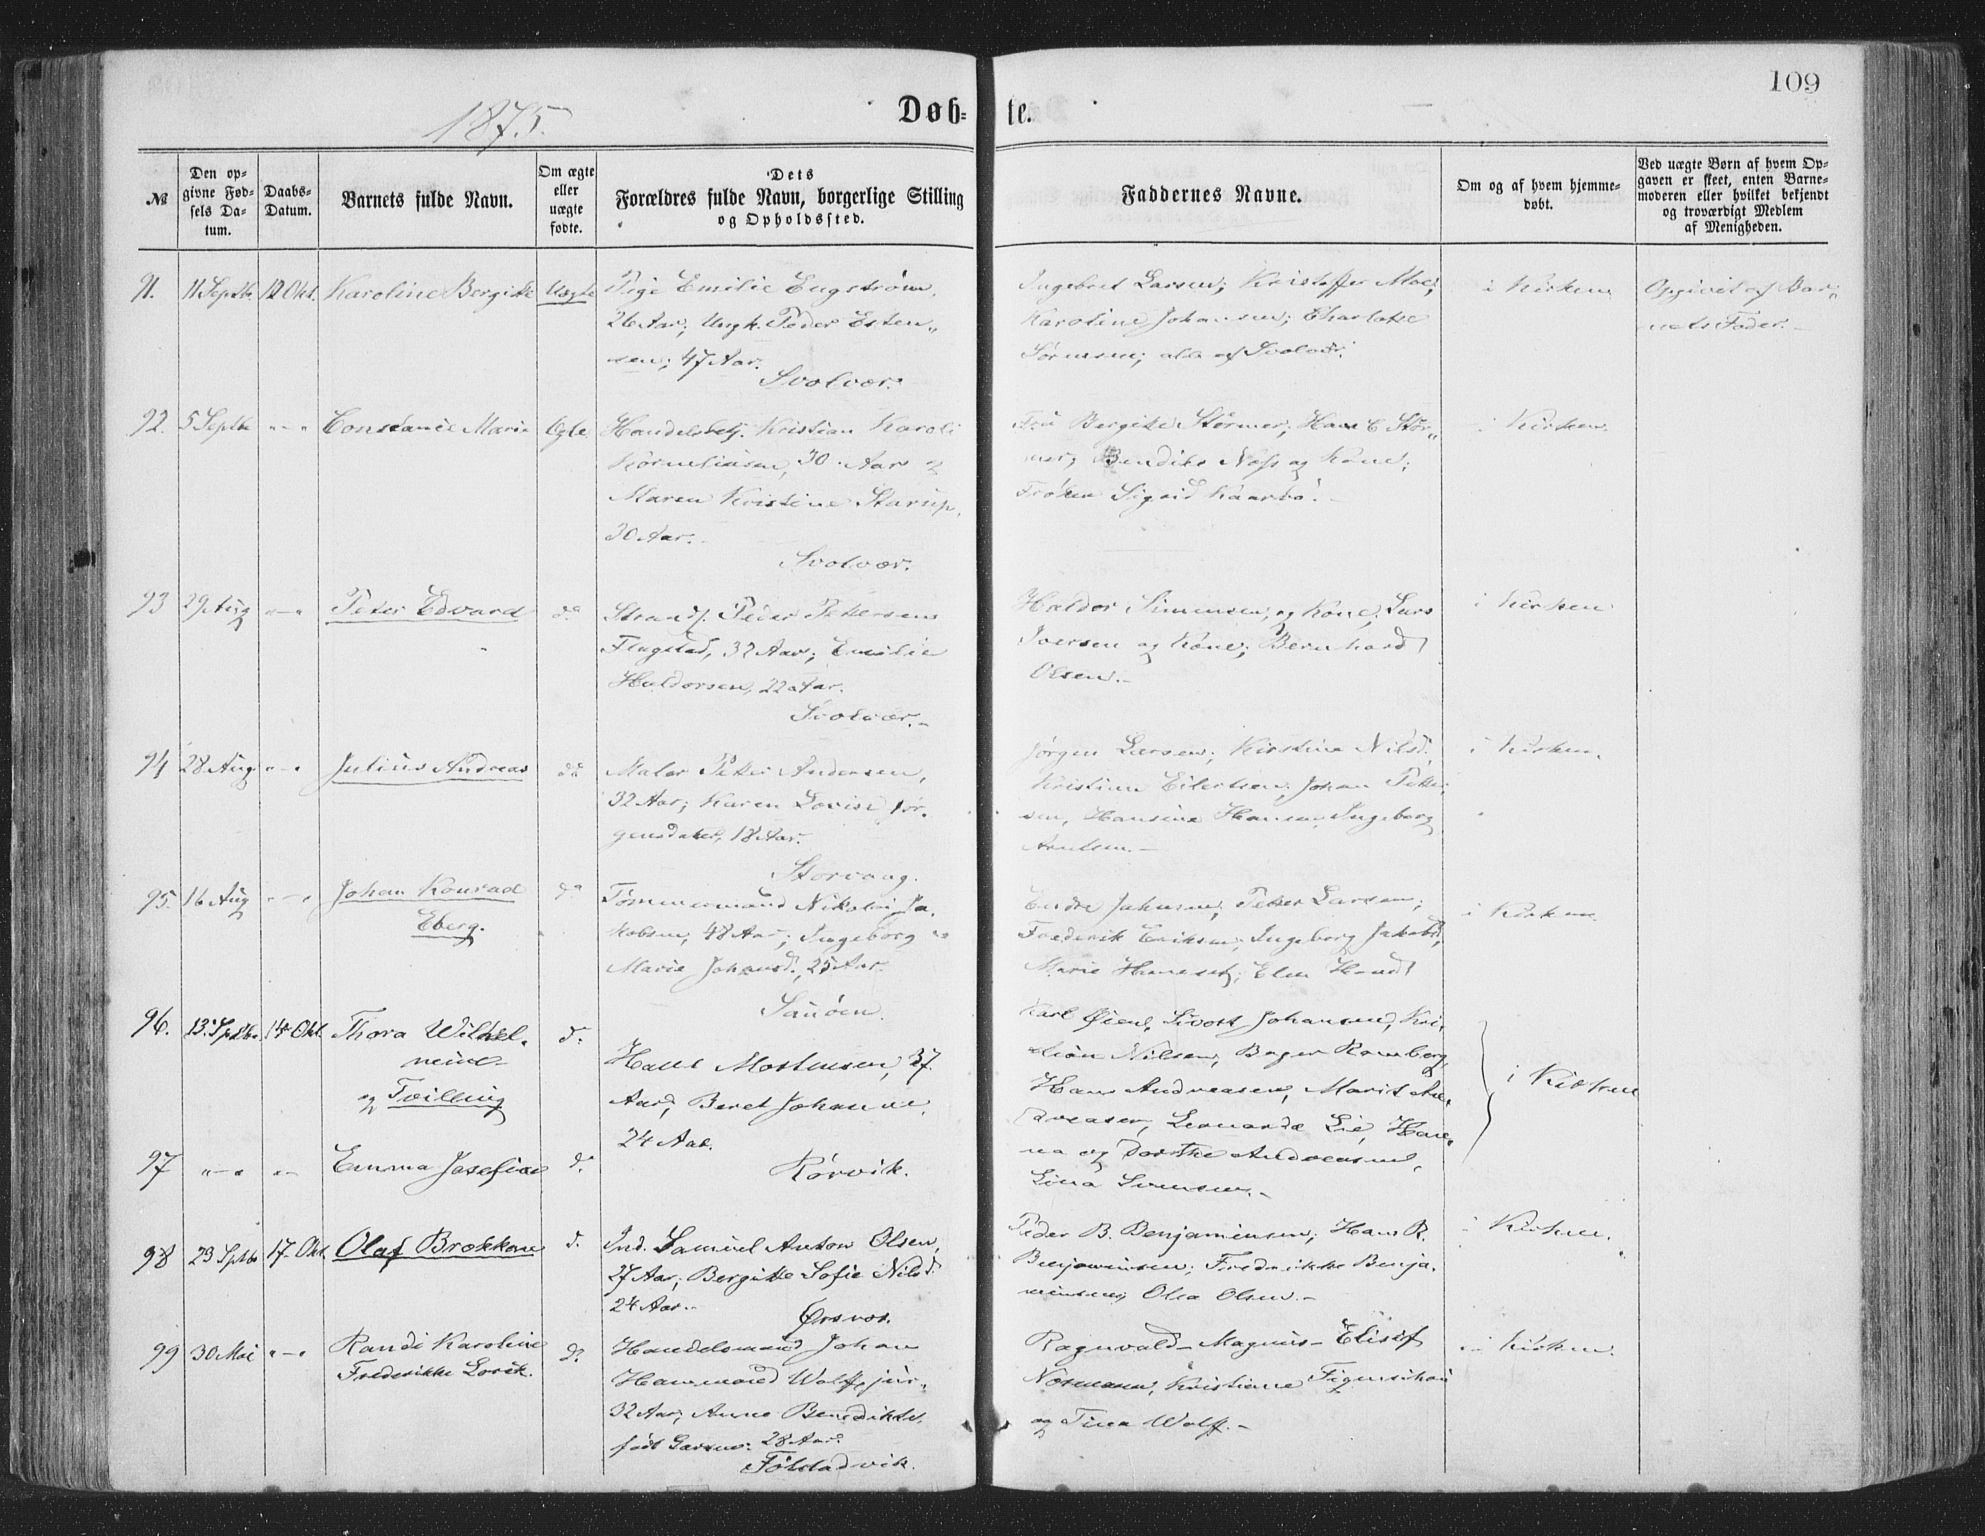 109
1875.
Døb-
te.
№
Den opgivne Fødsels Datum.
Daabs-Datum.
Barnets fulde Navn.
Om ægte eller uægte fødte.
Dets Forældres fulde Navn, borgerlige Stilling og Opholdssted.
Faddernes Navne.
Om og af hvem hjemmedøbt.
Ved uægte Børn af hvem Opgaven er skeet, enten Barnemoderen eller hvilket bekjendt og troværdigt Medlem af Menigheden.
91. 11 Septb. 12 Okt. Karoline Bergitte Uægte
Pige Emilie Engstrøm,
26 Aar; Ungk. Peder Esten„
sen; 47 Aar.
Svolvær.
Ingebret Larsen; Kristoffer Moe;
Karoline Johansen; Charlotte
Sørensen; alle af Svolvær.
i Kirken
Opgivet af Bar„
nets Fader.
92. 5 Septb „—„ Constance Marie Ægte
Handelsbetj. Kristian Karoli
Korneliusen, 30 Aar og
Maren Kristine Starup,
30 Aar.
Svolvær.
Fru Bergitte Størmer; Hans C Stør„
mer; Bendiks Næss og Kone;
Frøken Sigrid Kaarbø.
i Kirken.
93 29 Aug „—„ Peter Edvard do
Strands. Peder Petersen
Flagstad, 32 Aar; Emilie
Haldorsen, 22 Aar.
Svolvær.
Haldor Simensen og Kone; Lars
Iversen og Kone; Bernhard
Olsen.
i Kirken
94 28 Aug „—„ Julius Andreas do
Maler Peter Andersen,
32 Aar; Karen Lovise Jør-
gensdatter, 18 Aar.
Storvaag.
Jørgen Larsen; Kirstine Nilsd.
Kristine Eilertsen; Johan Petter
sen, Hansine Hansen, Ingeborg
Arntsen.
i Kirken.
95. 16 Aug „—„ Johan Konrad do
Eberg.
Tømmermand Nikolai Ja-
kobsen, 48 Aar; Ingeborg
Marie Johansd., 25 Aar.
Sauøen.
Endre Johnsen; Peter Larsen;
Frederik Eriksen; Ingeborg Jakobsd;
Marie
i Kirken
96. 13 Septb. 14 Okt. Thora Wilhel-
mine
og Tvilling
d.
Hans Mortensen, 37
Aar; Beret Johanne,
24 Aar.
Rørvik.
Karl Øien, Sivert Johansen, Kri-
stian Nilsen, Romberg,
Hans Andreasen, Marit An-
dreasen, Leonarde Lie, Han-
na og Dorthe Andreasen,
Lina
i Kirken
97 „—„ „— Emma Josefine d.
98 23 Septb 17. Okt. Olaf Brokkan d.
Ind. Samuel Anton Olsen,
27 Aar; Bergitte Sofie Nilsd.
24 Aar.
Ørsvos.
Peder B. Benjaminsen; Hans R.
Benjaminsen; Fredrikke Benja-
minsen; Olea Olsen.
i Kirken.
99 30 Mai „—„ Randi Karoline d?
Frederikke Lovise.
Handelsmand Johan
Hammond Wolff, jur.
32 Aar; Anne Benedikte
født Larsen. 28 Aar.
Ragnvald — Magnus — Elisif
Normann, Kristiane
og Tina Wolff.
i Kirken.